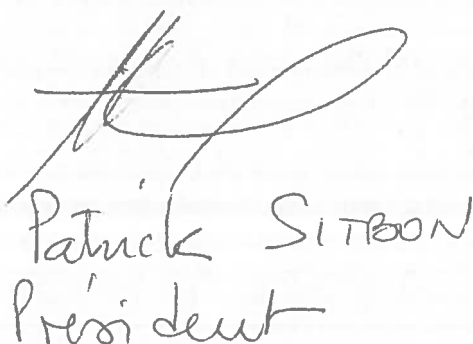 Patrick SITBON
Président